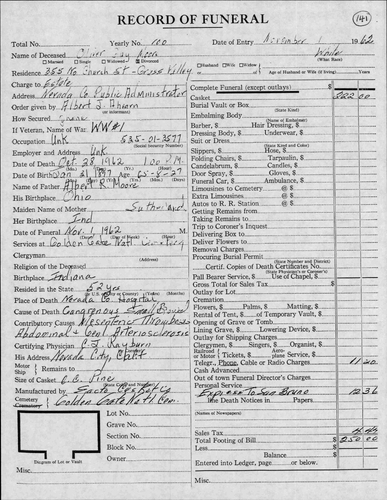 RECORD OF FUNERAL
141
Total No. Yearly No. 100 Date of Entry November 1 1962
Name of Deceased Oliver Jay Moore White
Married Single Widowed Divorced Husband Wife Widow (What Race)
Residence 355 No Church St - Grass Valley Age of Husband or Wife (if living)
Charge to Estate
Address Nevada Co Public Administrator
Order given by Albert J. Ahern
How Secured
If Veteran, Name of War WW #1
Occupation Unk 535-01-3577
(Social Security Number)
Employer and Address Unk
Date of Death Oct. 28, 1962 1:00 P.M.
Date of Birth Jan 31 1897 Age 65-8-27
Name of Father Albert R. Moore
His Birthplace Ohio
Maiden Name of Mother Sutherland
Her Birthplace Ind
Date of Funeral Nov. 1 1962
Services at Golden Gate Natl Cemetery
Clergyman
Religion of the Deceased
Birthplace Indiana
Resided in the State 52 yrs
Place of Death Nevada Co. Hospital
Cause of Death Gangrenous Small Bowel
Contributory Causes Mesenteric Thrombosis
Abdominal & Genl Arteriosclerosis
Certifying Physician C. J. Rayburn
His Address Nevada City, Calif
Motor Ship Remains to
Size of Casket Pine
Manufactured by Sacto Casket Co
Cemetery Crematory Golden Gate Natl Cem.
Lot No.
Grave No.
Section No.
Block No.
Owner
Diagram of Lot or Vault
Misc.
Complete Funeral (except outlays) $
Casket 222 00
Burial Vault or Box
(State Kind)
Embalming Body
(Name of Embalmer)
Barber, $ Hair Dressing, $
Dressing Body, $ Underwear, $
Suit or Dress
(State Kind and Color)
Slippers, $ Hose, $
Folding Chairs, $ Tarpaulin, $
Candelabrum, $ Candles, $
Door Spray, $ Gloves, $
Funeral Car, $ Ambulance, $
Limousines to Cemetery @ $
Extra Limousines @ $
Autos to R. R. Station @ $
Getting Remains from
Taking Remains to
Trip to Coroner's Inquest
Delivering Box to
Deliver Flowers to
Removal Charges
Procuring Burial Permit
(State Number and District)
Certif. Copies of Death Certificates No.
Pall Bearer Service, $ Use of Chapel, $
Gross Total for Sales Tax $
Outlay for Lot
Cremation
Flowers, $ Palms, $ Matting, $
Rental of Tent, $ of Temporary Vault, $
Opening of Grave or Tomb
Lining Grave, $ Lowering Device, $
Outlay for Shipping Charges
Clergymen, $ Singers, $ Organist, $
Railroad or Motor Tickets, $ Aeroplane Service, $
Telegr., Phone, Cable or Radio Charges 11 20
Cash Advanced
Out of town Funeral Director's Charges
Personal Service
Expense To San Bruno 12 36
line Death Notices in Papers
(Names of Newspapers)
Sales Tax 4 44
Total Footing of Bill $ 250 00
Less
Balance $
Entered into Ledger, page or below.
Misc.